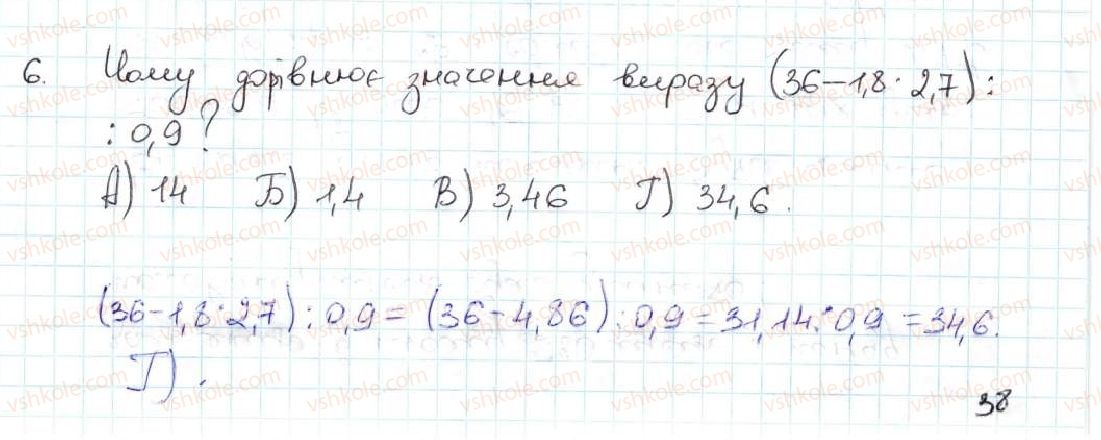 6. Чому дорівнює значення виразу (36-1,8·2,7):
:0,9?
А) 14 Б) 1,4 В) 3,46 Г) 34,6.
(36-1,8·2,7):0,9=(36-4,86):0,9=31,14:0,9=34,6.
Г).
38